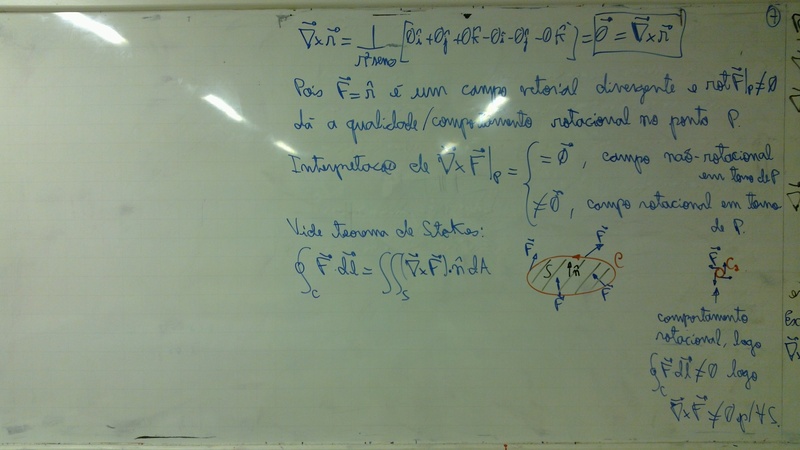 7
∇⃗×r⃗ = 1/(r² senθ) [0î+0ĵ+0k̂-0î-0ĵ-0k̂] = 0⃗ = ∇⃗×r⃗
Pois F⃗ = r̂ é um campo vetorial divergente e rot F⃗|p ≠ 0
dá a qualidade/comportamento rotacional no ponto P.
Interpretação de ∇⃗×F⃗|p = { = 0⃗, campo não-rotacional
em torno de P
≠ 0⃗, campo rotacional em torno
de P.
Vide teorema de Stokes:
∮c F⃗·dl⃗ = ∬s [∇⃗×F⃗]·n̂ dA
F⃗ F⃗ S n̂ C F⃗ F⃗
F⃗
comportamento
rotacional, logo
∮c F⃗·dl⃗ ≠ 0 logo
∇⃗×F⃗ ≠ 0 p/ ∀ S.